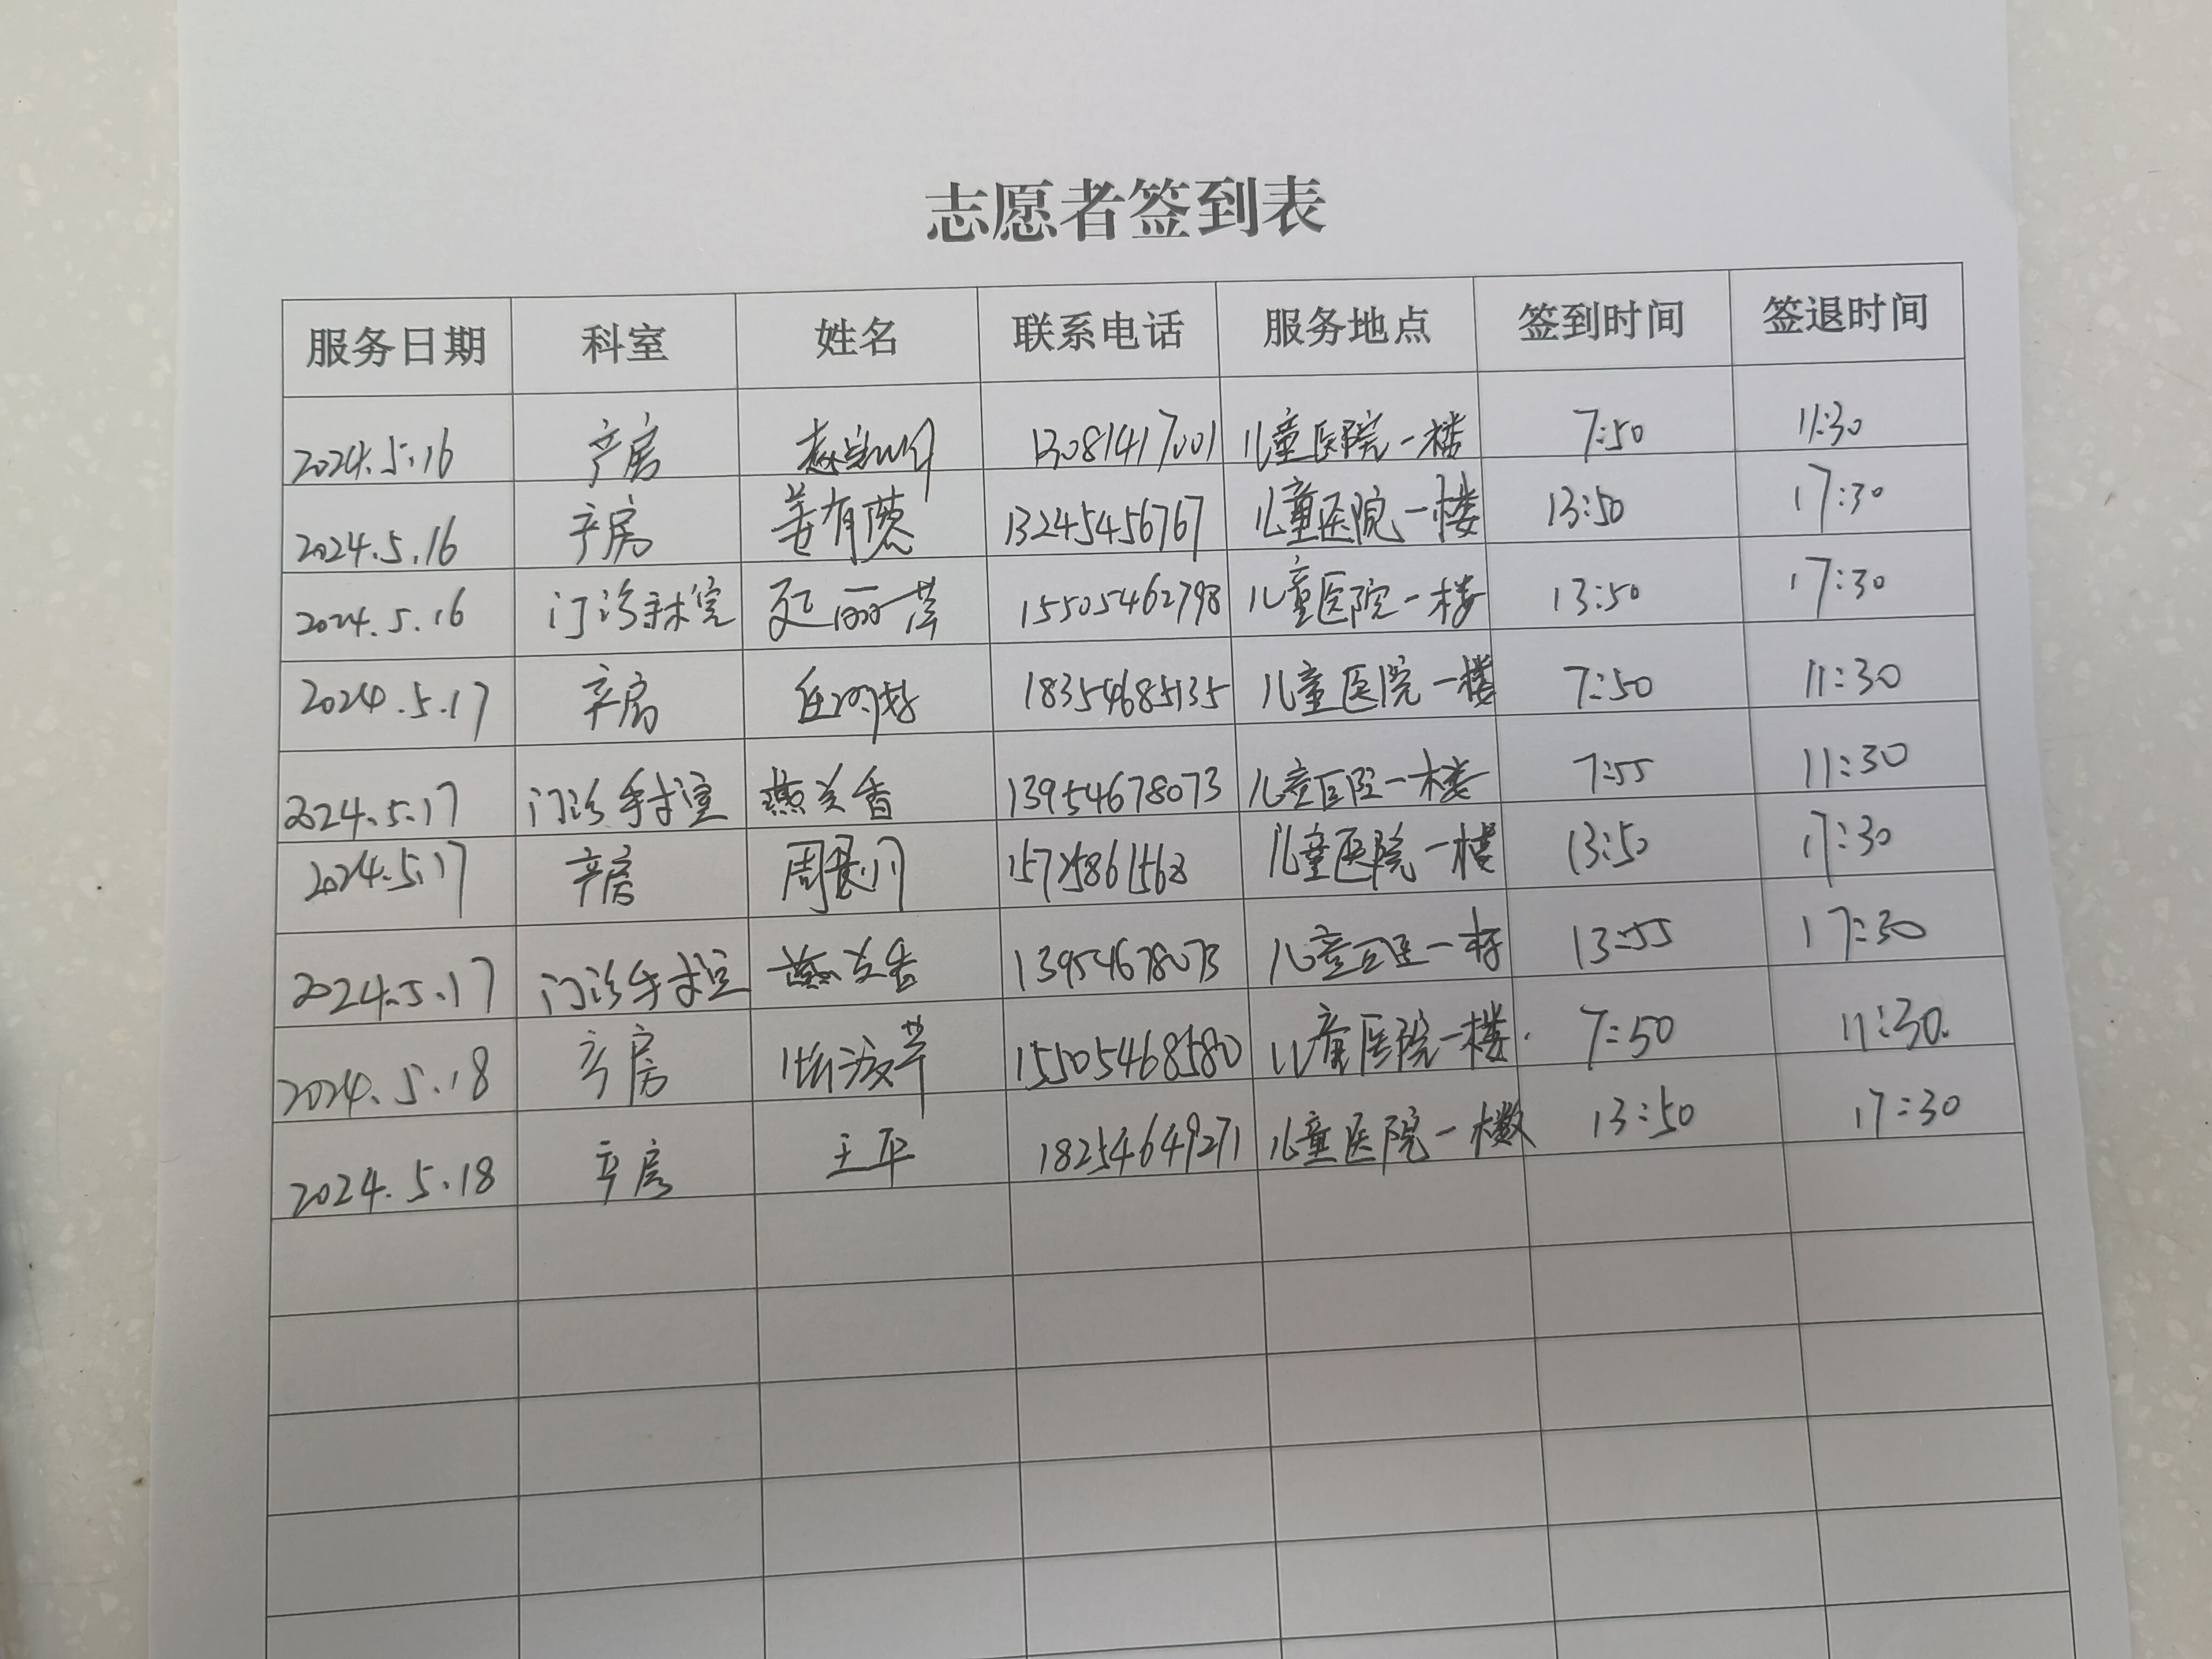 志愿者签到表
服务日期 科室 姓名 联系电话 服务地点 签到时间 签退时间
2024.5.16 产房 13081417001 儿童医院一楼 7:50 11:30
2024.5.16 产房 姜有蕙 13245456767 儿童医院一楼 13:50 17:30
2024.5.16 门诊手术室 延丽萍 15505462798 儿童医院一楼 13:50 17:30
2024.5.17 产房 18354685135 儿童医院一楼 7:50 11:30
2024.5.17 门诊手术室 燕兰香 13954678073 儿童医院一楼 7:55 11:30
2024.5.17 产房 15725861568 儿童医院一楼 13:50 17:30
2024.5.17 门诊手术室 燕兰香 13954678073 儿童医院一楼 13:55 17:30
2024.5.18 产房 15505468580 儿童医院一楼. 7:50 11:30.
2024.5.18 产房 王平 18254649271 儿童医院一楼 13:50 17:30